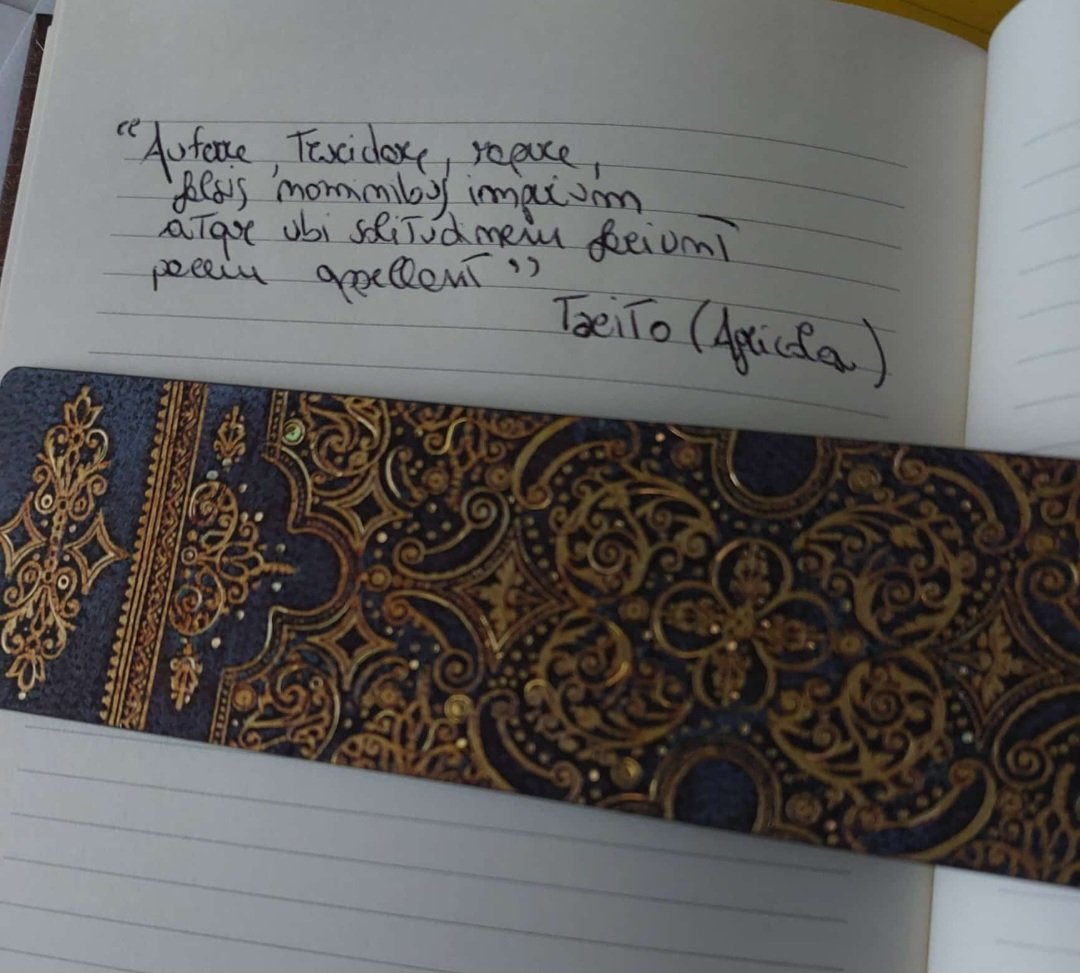 “Auferre, Trucidare, rapere,
falsis nominibus imperium
atque ubi solitudinem faciunt
pacem appellant”
Tacito (Agricola)